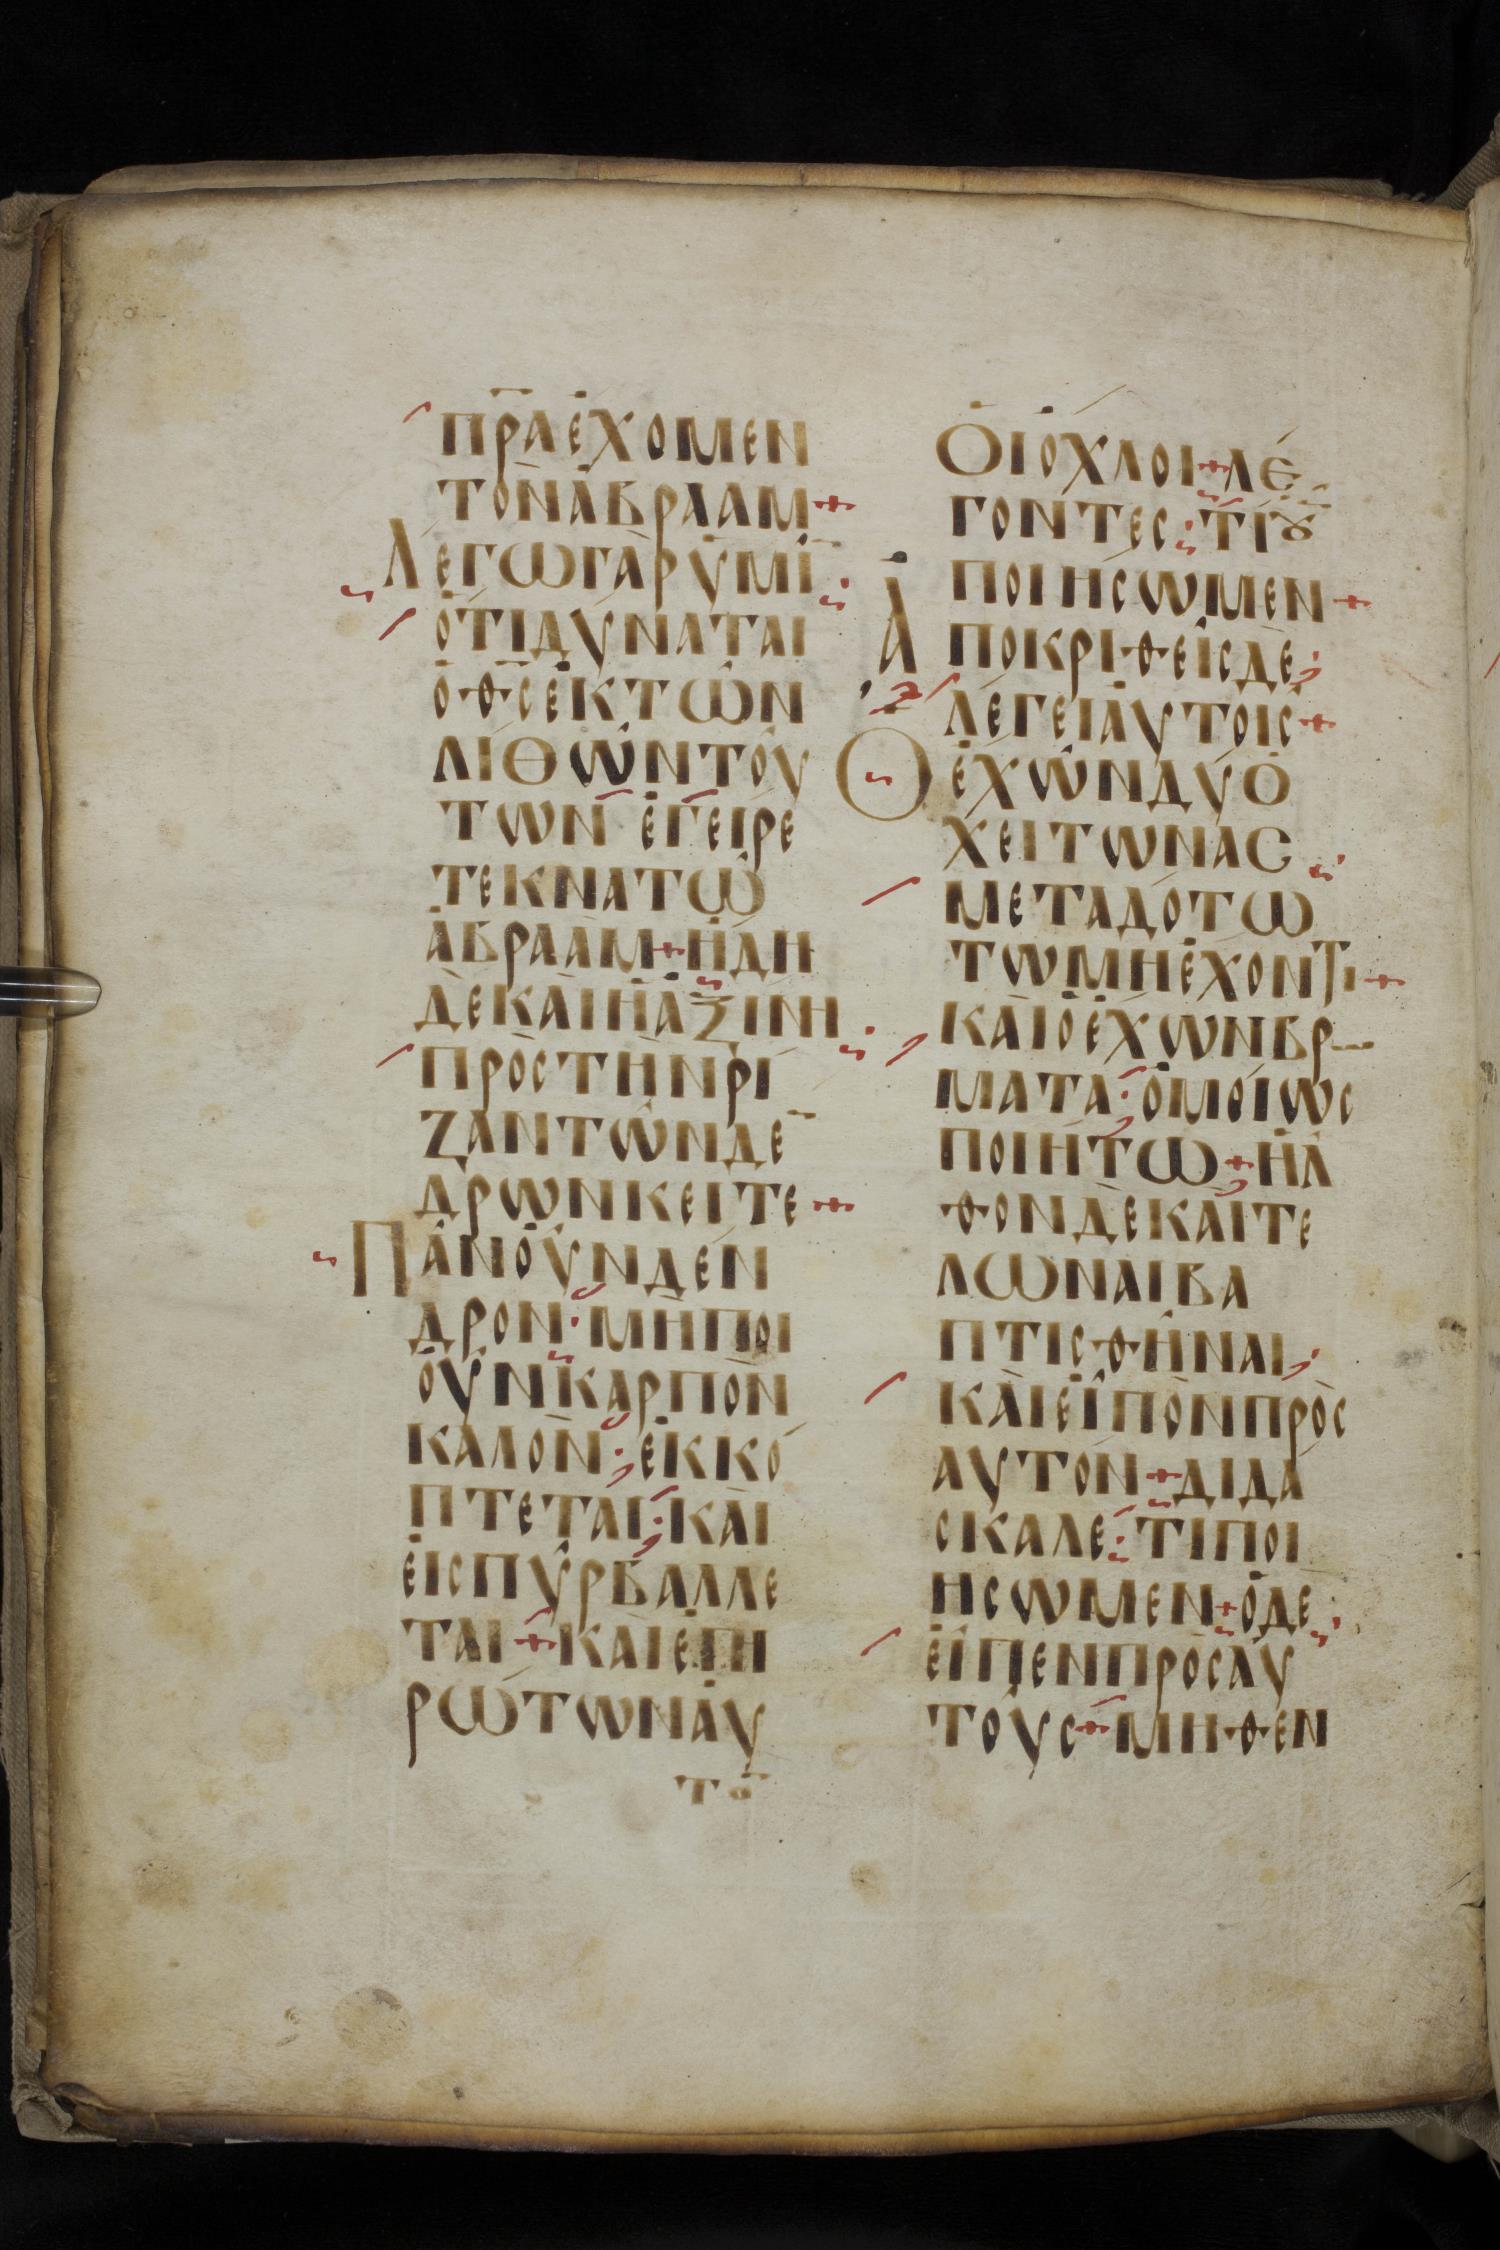 ΠΡ̅Α ἘΧΟΜΕΝ
ΤΟΝ ἈΒΡΑΑΜ +
ΛΕΓΩ ΓᾺΡ ΥΜΙ̅
ὍΤΙ ΔΥΝΑΤΑΙ
Ὁ Θ̅Σ ἘΚ ΤῶΝ
ΛΙΘΩΝ ΤΟΥ
ΤΩΝ ἘΓΕΙΡΕ
ΤΕΚΝΑ ΤΩ
ἈΒΡΑΑΜ + ἬΔΗ
ΔΕ ΚΑΙ Ἡ ἈΞΙΝΗ
ΠΡῸΣ ΤΗΝ ΡΙ
ΖΑΝ ΤῶΝ ΔΕ̅
ΔΡΩΝ ΚΕΙΤΕ +
ΠΑΝ ΟΥΝ ΔΕΝ
ΔΡΟΝ · ΜΗ ΠΟΙ
ΟΥΝ ΚΑΡΠΟΝ
ΚΑΛΟΝ · ἘΚΚΟ
ΠΤΕΤΑΙ · ΚΑΙ
ἘΙΣ ΠΥΡ ΒΑΛΛΕ
ΤΑΙ + ΚΑΙ ἘΠΙ
ΡΩΤΩΝ ἈΥ
ΤΟ̅
ὉΙ ὈΧΛΟΙ + ΛΕ
ΓΟΝΤΕΣ : ΤΙ Ȣ̅
ΠΟΙΗΣΩΜΕΝ +
ἈΠΟΚΡΙΘΕΙΣ ΔΕ ·
ΛΕΓΕΙ ἈΥΤΟΙΣ +
Ὁ ἘΧΩΝ ΔΥΟ
ΧΕΙΤΩΝΑΣ ·
ΜΕΤΑΔΟΤΩ
ΤΩ ΜΗ ἘΧΟΝΤΙ +
ΚΑΙ Ὁ ἘΧΩΝ ΒΡΩ
ΜΑΤΑ · ὉΜΟΙΩΣ
ΠΟΙΗΤΩ + ἮΛ
ΘΟΝ ΔΕ ΚΑΙ ΤΕ
ΛΩΝΑΙ ΒΑ
ΠΤΙΣΘΗΝΑΙ ·
ΚΑΙ ΕἸΠΟΝ ΠΡΟΣ
ΑΥΤΟΝ + ΔΙΔΑ
ΣΚΑΛΕ : ΤΙ ΠΟΙ
ΗΣΩΜΕΝ + Ὁ ΔΕ ·
ΕἸΠΕΝ ΠΡΟΣ ΑΥ
ΤΟΥΣ + ΜΗΘΕΝ